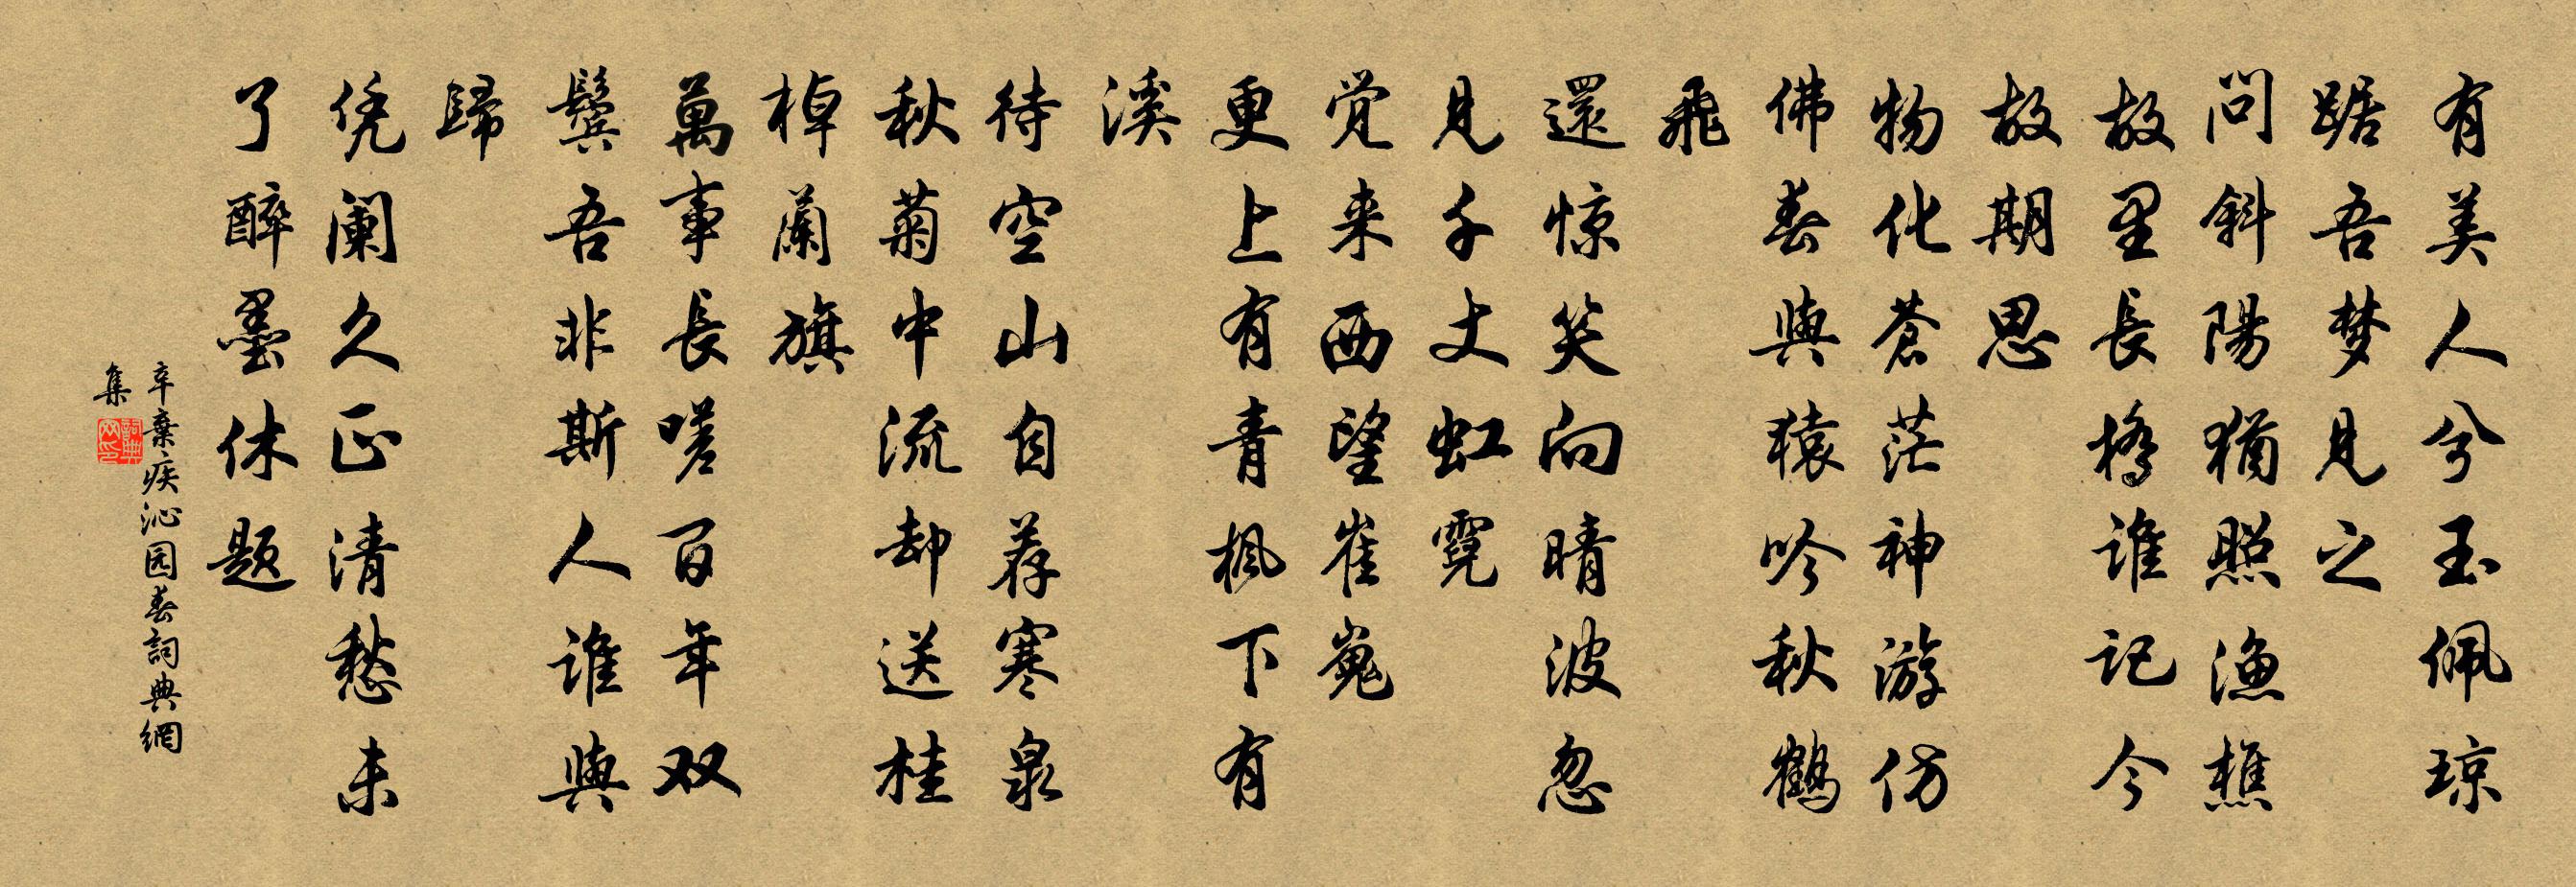 有美人兮玉佩琼
踞吾梦见之
问斜陽猶照渔樵
故里長橋谁记今
故期思
物化苍茫神游仿
佛春與猿吟秋鶴
飛
還惊笑向晴波忽
見千丈虹霓
觉来西望崔嵬
更上有青枫下有
溪
待空山自荐寒泉
秋菊中流却送桂
棹蘭旗
萬事長嗟百年双
鬓吾非斯人谁與
歸
凭阑久正清愁未
了醉墨休题
辛棄疾沁园春詞典網
集
詞典网印